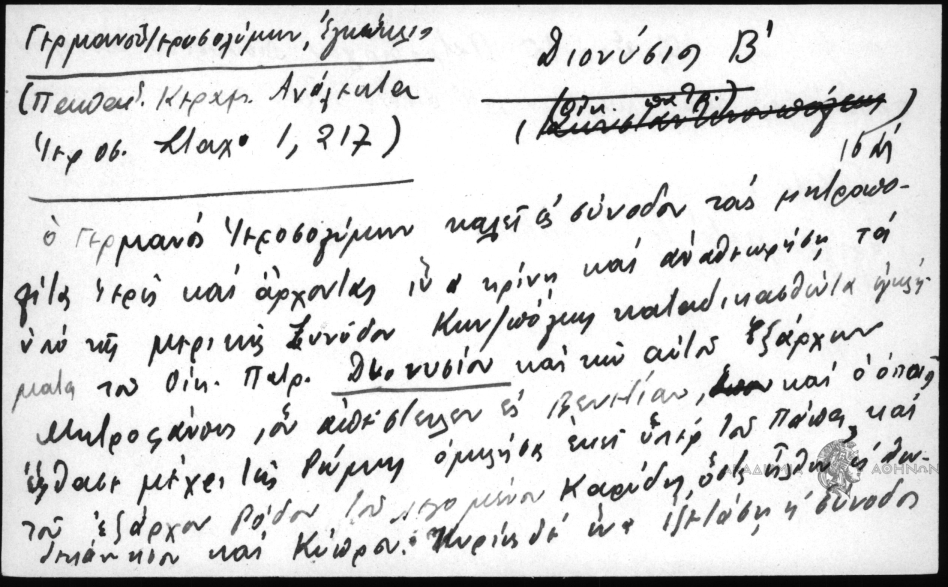 Γερμανοῦ Ἱεροσολύμων, Ἐγκύκλιος
(Παπαδ. Κεραμ. Ἀνάλεκτα
Ἱεροσ. Σταχ. 1, 217)
Διονύσιος Β'
(Οἰκ. πατρ.)
16 αἰ
ὁ Γερμανός Ἱεροσολύμων καλεῖ εἰς σύνοδον τούς μητροπο-
λίτας ἱερεῖς καί ἄρχοντας ἵνα κρίνῃ καί ἀναθεωρήσῃ τά
ὑπό τῆς μερικῆς Συνόδου Κων/πόλεως καταδικασθέντα ἐγκλή-
ματα τοῦ Οἰκ. Πατρ. Διονυσίου καί τοῦ αὐτοῦ Ἐξάρχου
Μητροφάνους, ὅν ἀπέστειλεν εἰς Βενετίαν, καί ὁ ὁποῖος
ἔφθασε μέχρι τῆς Ρώμης ὁμιλήσας ἐκεῖ ὑπέρ τοῦ Πάπα, καί
τοῦ ἐξάρχου Ρόδου τοῦ λεγομένου Καρύδη, ὅστις ἦλθεν εἰς
καί Κύπρον. Κυρίως δέ ἵνα ἐξετάσῃ ἡ σύνοδος
ΑΚΑΔΗΜΙΑ ΑΘΗΝΩΝ